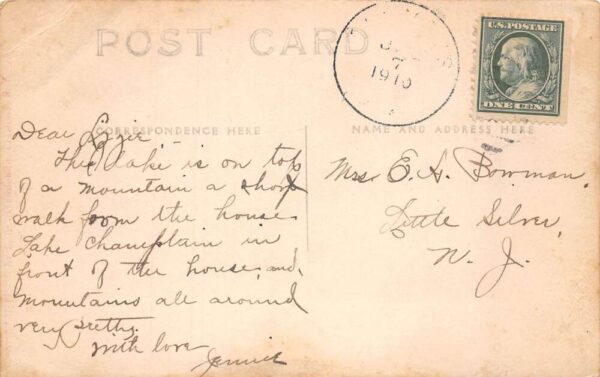 POST CARD
7
1910
U.S. POSTAGE
ONE CENT
CORRESPONDENCE HERE
NAME AND ADDRESS HERE
Dear Lizzie -
This lake is on top
of a mountain a short
walk from the house.
Lake Champlain in
front of the house, and
mountains all around
very pretty.
With love
Jennie
Mrs. E. A. Bowman,
Little Silver,
N. J.